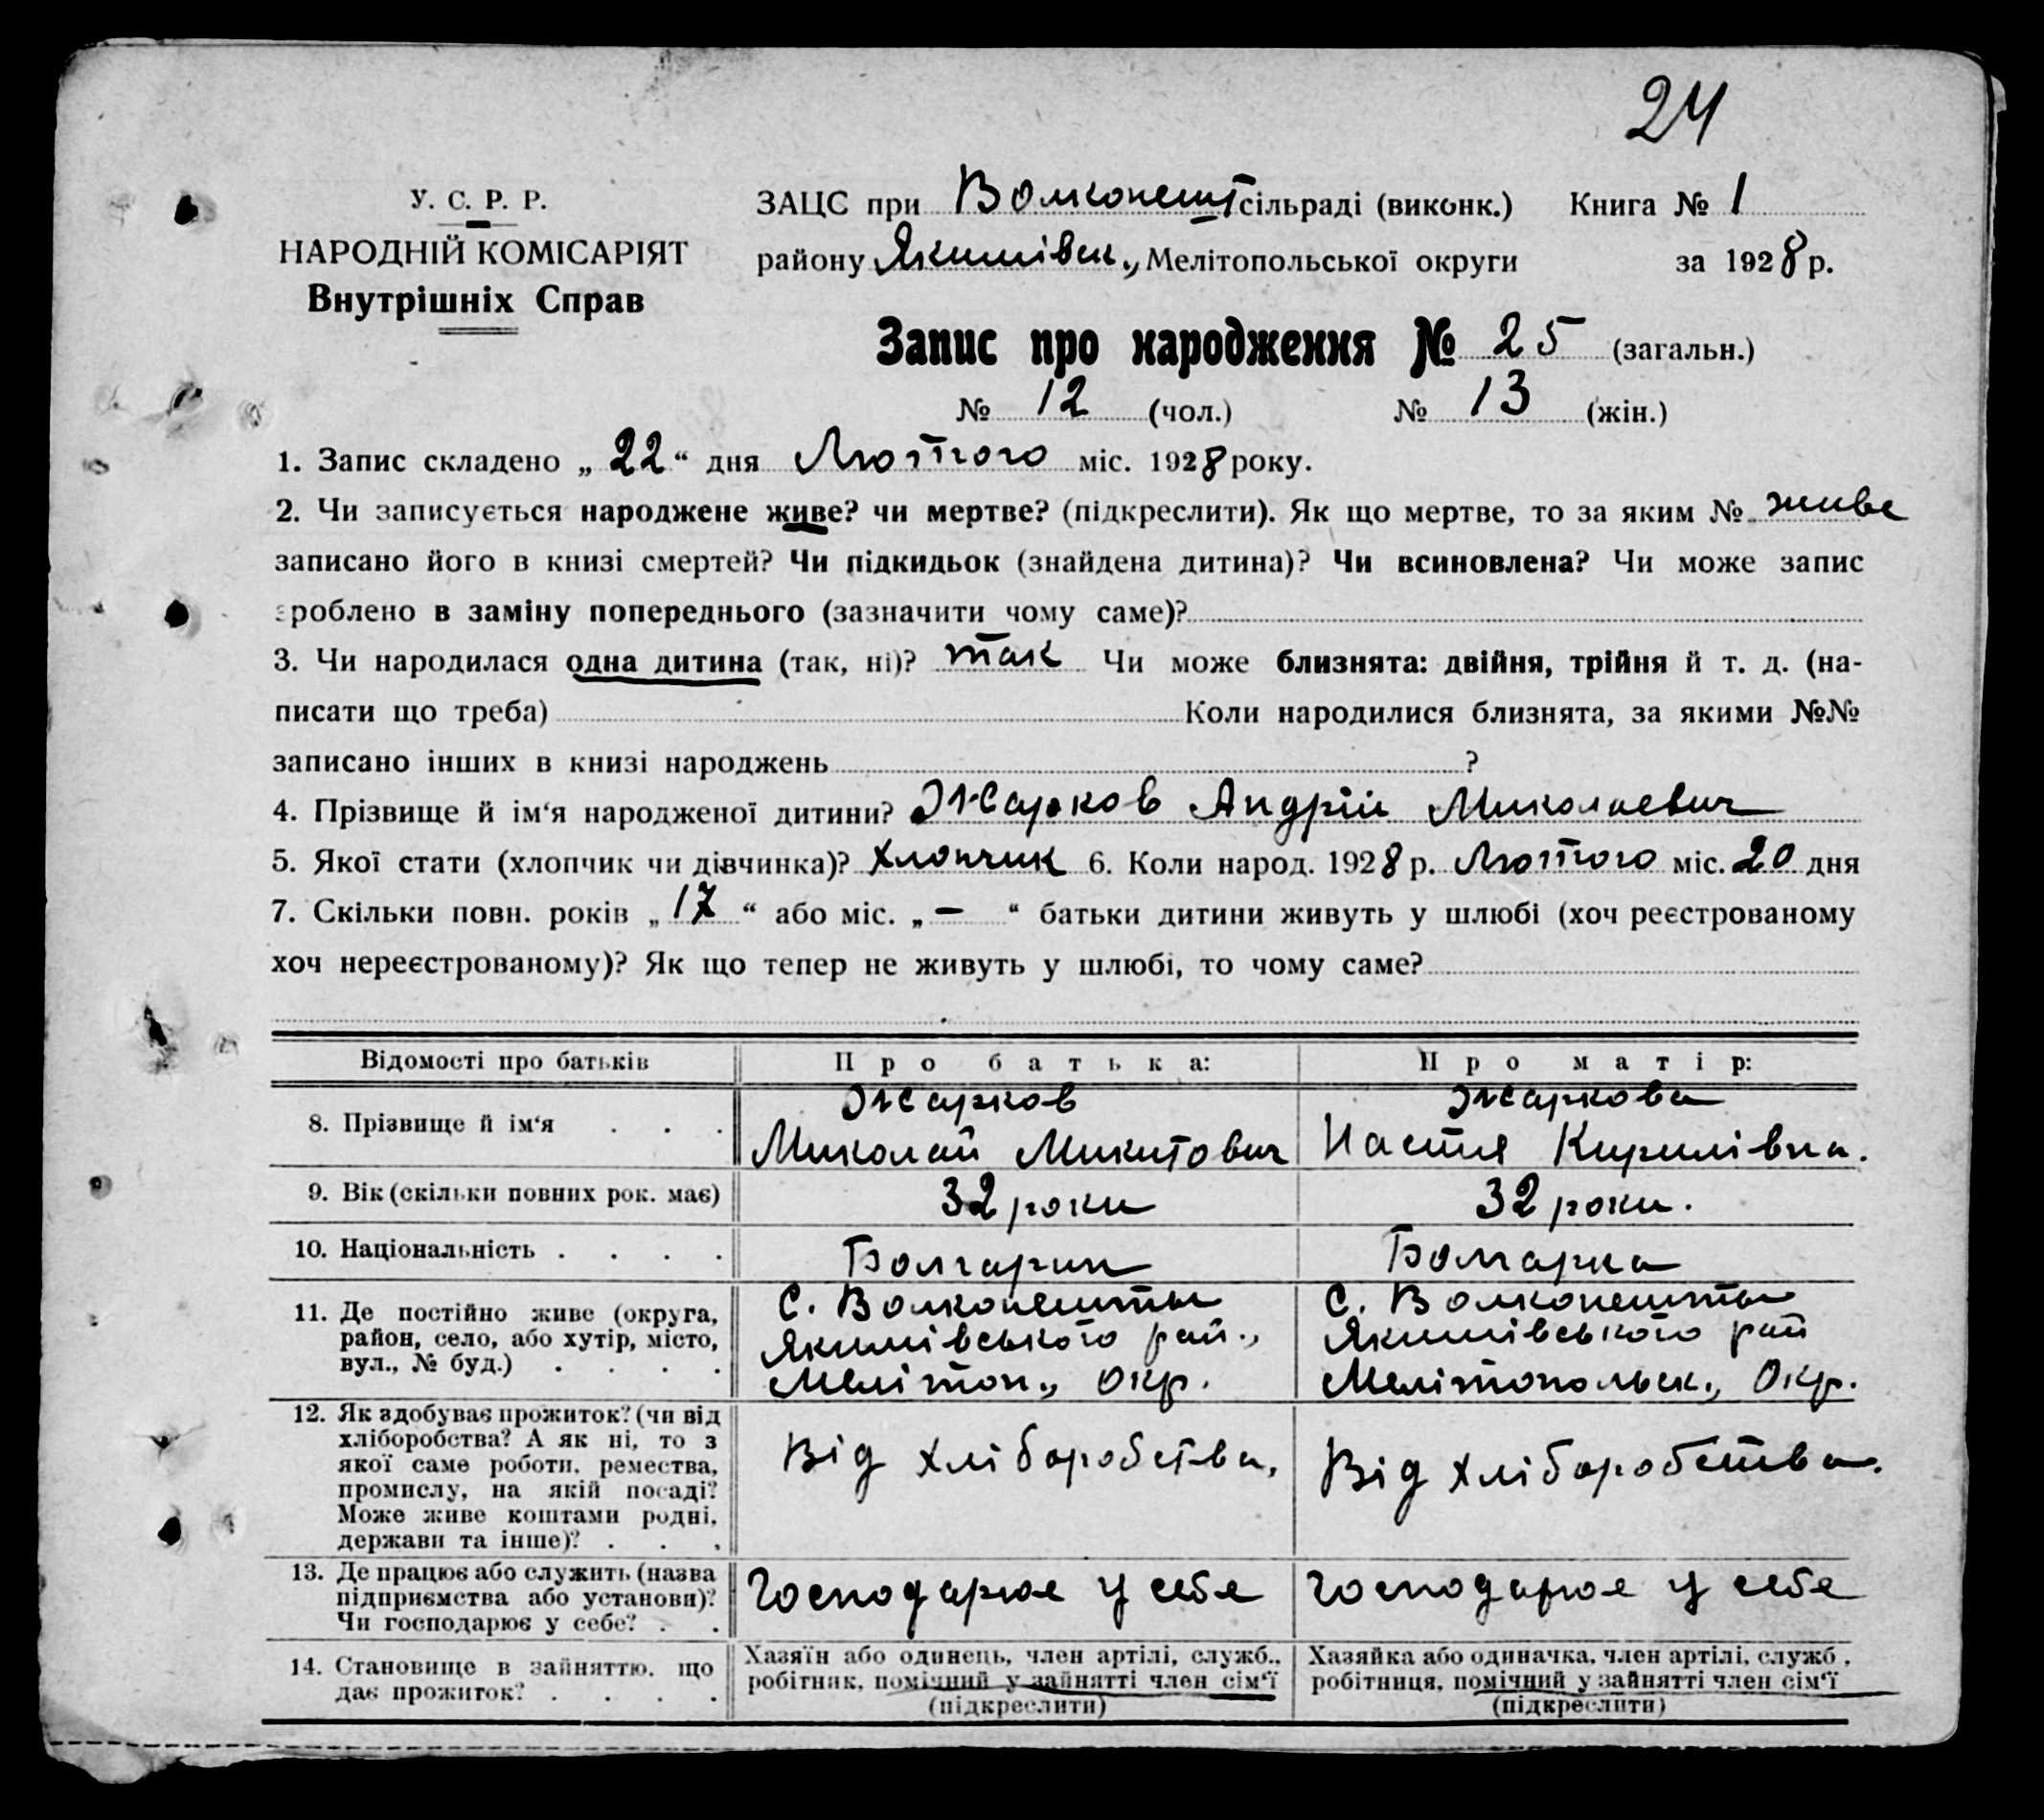 24
У. С. Р. Р.
НАРОДНІЙ КОМІСАРІЯТ
Внутрішніх Справ
ЗАЦС при Волконешт сільраді (виконк.) Книга № 1
району Якимівськ., Мелітопольської округи за 1928 р.
Запис про народження № 25 (загальн.)
№ 12 (чол.) № 13 (жін.)
1. Запис складено „ 22 “ дня Лютого міс. 1928 року.
2. Чи записується народжене живе? чи мертве? (підкреслити). Як що мертве, то за яким № живе
записано його в книзі смертей? Чи підкидьок (знайдена дитина)? Чи всиновлена? Чи може запис
зроблено в заміну попереднього (зазначити чому саме)?
3. Чи народилася одна дитина (так, ні)? так Чи може близнята: двійня, трійня й т. д. (на-
писати що треба) Коли народилися близнята, за якими №№
записано інших в книзі народжень ?
4. Прізвище й ім‘я народженої дитини? Жарков Андрій Миколаевич
5. Якої стати (хлопчик чи дівчинка)? хлопчик 6. Коли народ. 1928 р. Лютого міс. 20 дня
7. Скільки повн. років „ 17 “ або міс. „ — “ батьки дитини живуть у шлюбі (хоч реєстрованому
хоч нереєстрованому)? Як що тепер не живуть у шлюбі, то чому саме?
Відомості про батьків Про батька: Про матір:
8. Прізвище й ім‘я . . . Жарков Жаркова
Миколай Микитович Настя Кирилівна.
9. Вік (скільки повних рок. має) 32 роки 32 роки.
10. Національність . . . . Болгарин Болгарка
11. Де постійно живе (округа, С. Волконешты С. Волконешты
район, село, або хутір, місто, Якимівського рай., Якимівського рай
вул., № буд.) . . . . Меліпоп., окр. Мелітопольськ., Окр.
12. Як здобуває прожиток? (чи від
хліборобства? А як ні, то з
якої саме роботи, ремества, Від хліборобства, Від хліборобства.
промислу, на якій посаді?
Може живе коштами родні,
держави та інше)? . . .
13. Де працює або служить (назва
підприємства або установи)? Господарює у себе Господарює у себе
Чи господарює у себе? . .
14. Становище в зайняттю, що Хазяїн або одинець, член артілі, служб., Хазяйка або одиначка, член артілі, служб.,
дає прожиток? . . . . робітник, помічний у зайнятті член сім‘ї робітниця, помічний у зайнятті член сім‘ї
(підкреслити) (підкреслити)